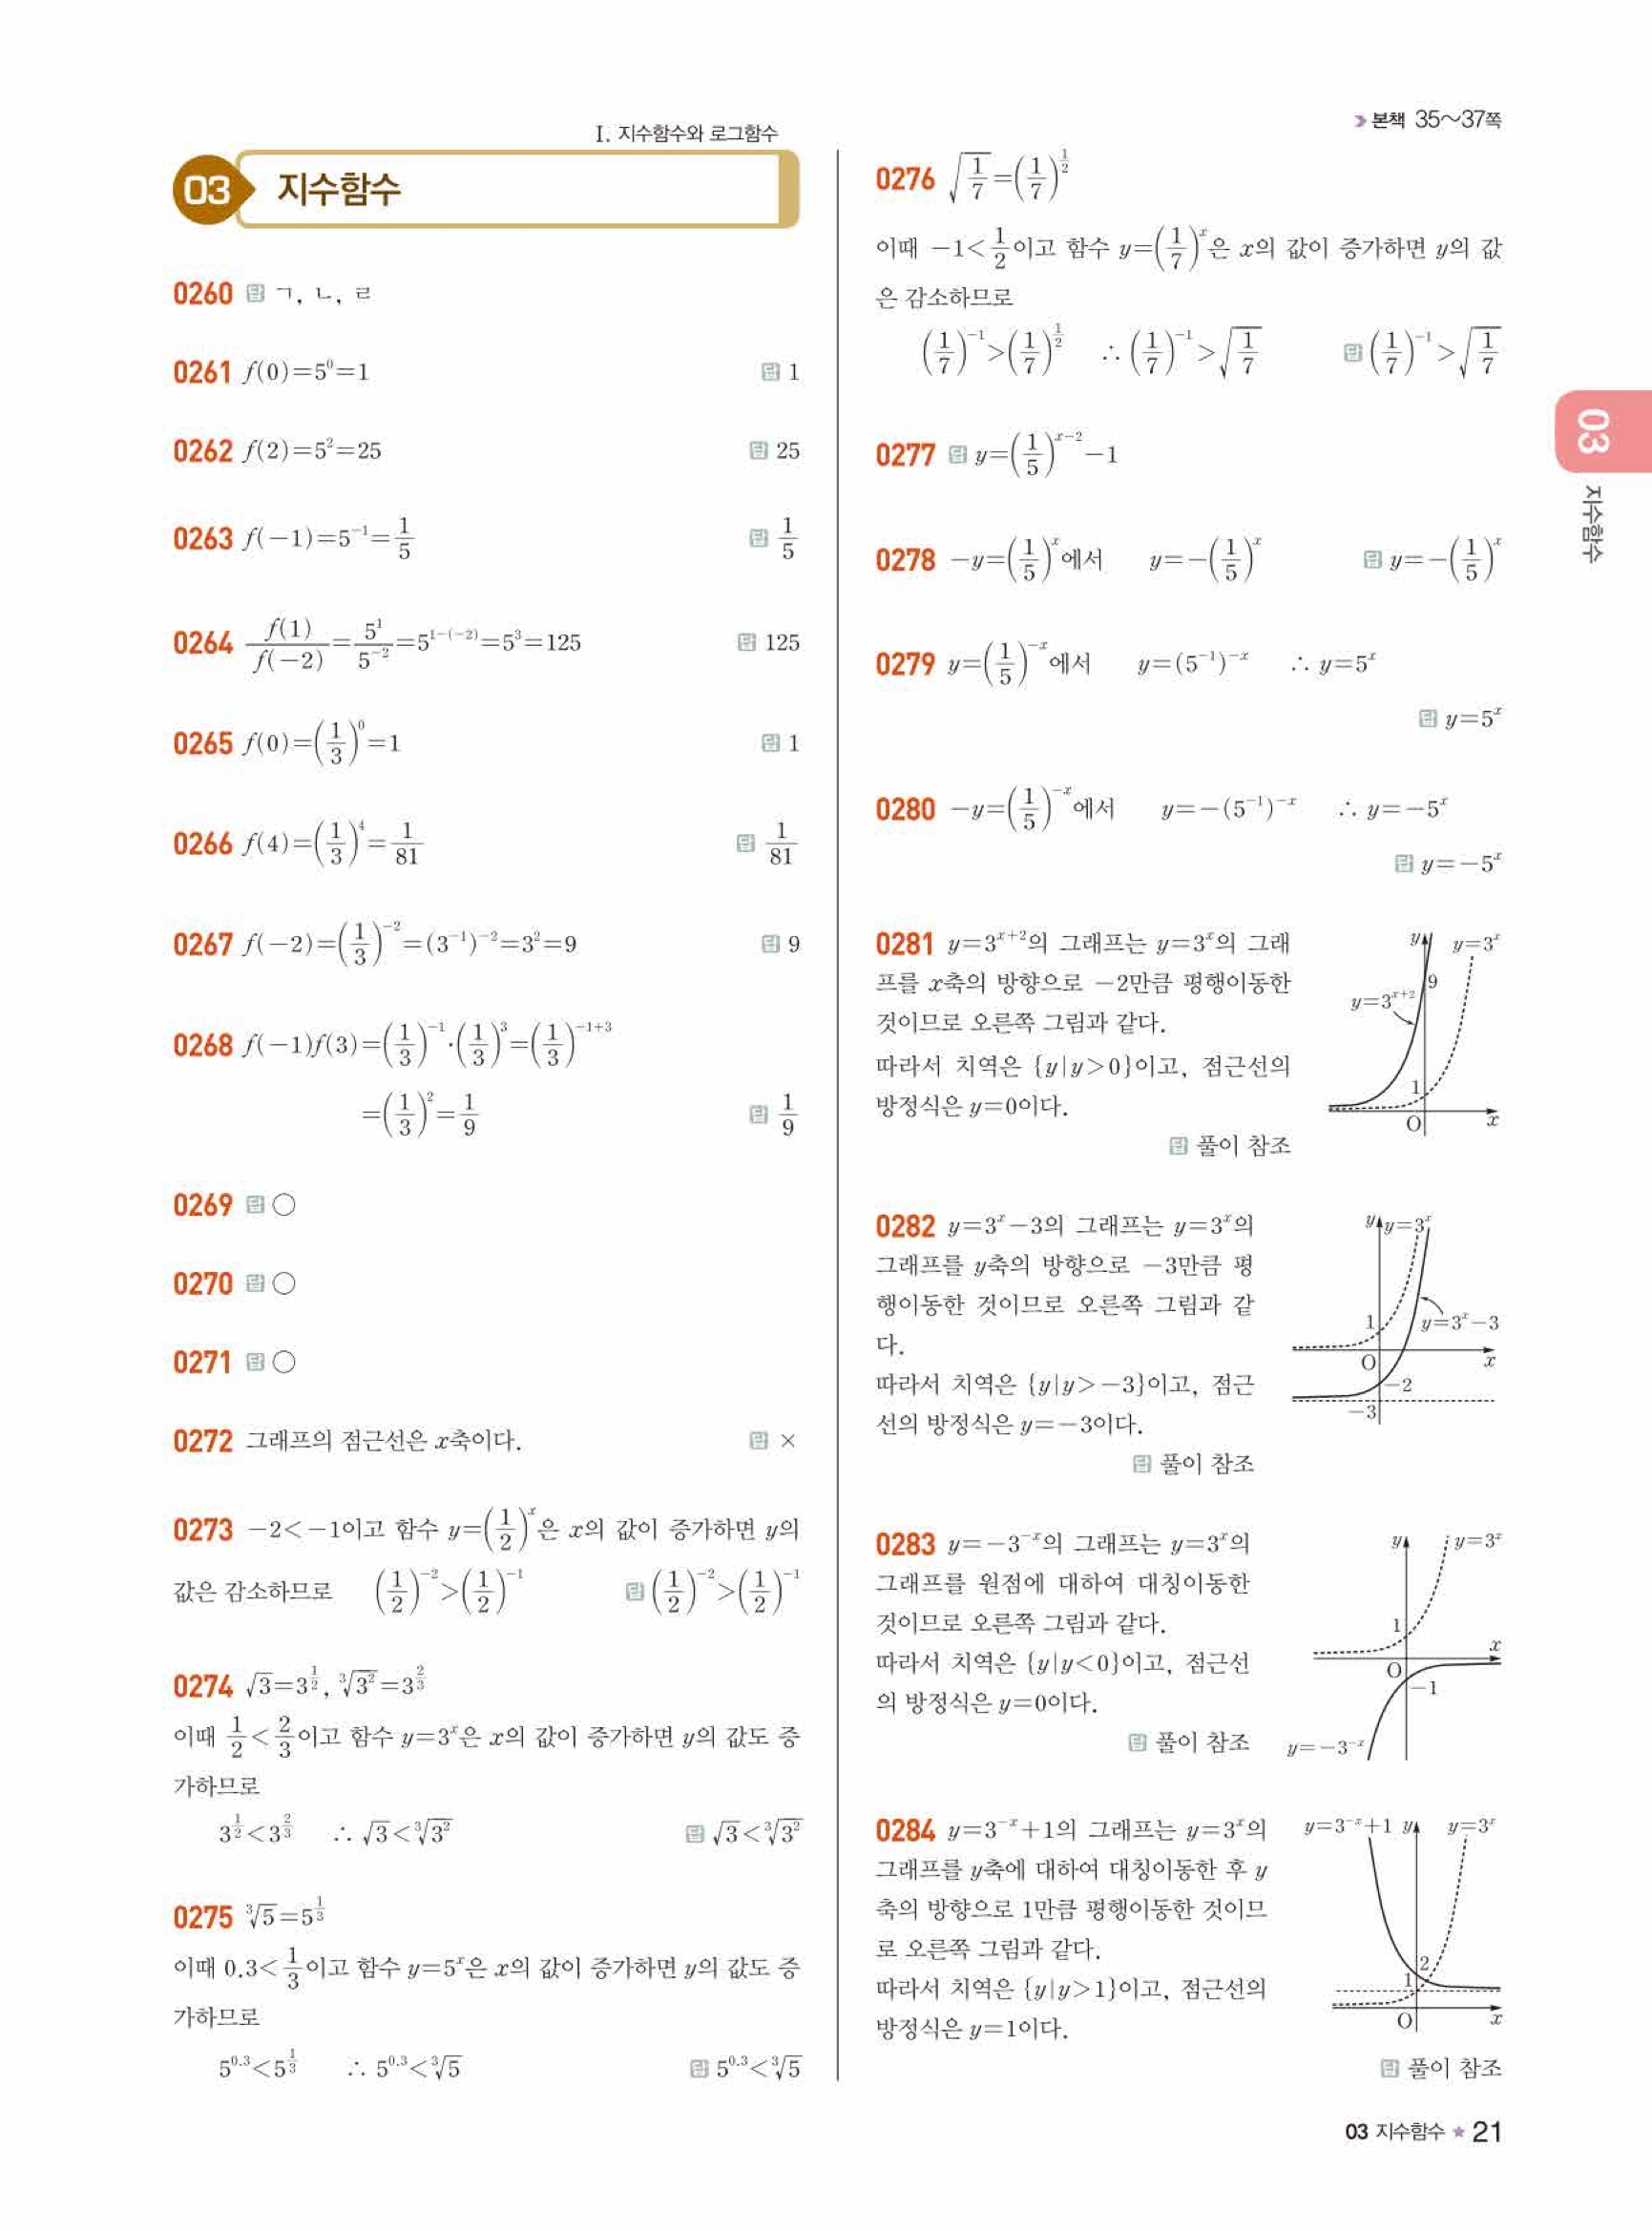 》 본책 35~37쪽
Ⅰ. 지수함수와 로그함수
03 지수함수
0260 답 ㄱ, ㄴ, ㄹ
0261 f(0)=5⁰=1 답 1
0262 f(2)=5²=25 답 25
0263 f(-1)=5⁻¹=1/5 답 1/5
0264 f(1)/f(-2)=5¹/5⁻²=5^{1-(-2)}=5³=125 답 125
0265 f(0)=(1/3)⁰=1 답 1
0266 f(4)=(1/3)⁴=1/81 답 1/81
0267 f(-2)=(1/3)⁻²=(3⁻¹)⁻²=3²=9 답 9
0268 f(-1)f(3)=(1/3)⁻¹·(1/3)³=(1/3)^{-1+3}
=(1/3)²=1/9 답 1/9
0269 답 ○
0270 답 ○
0271 답 ○
0272 그래프의 점근선은 x축이다. 답 ×
0273 -2<-1이고 함수 y=(1/2)^x은 x의 값이 증가하면 y의
값은 감소하므로 (1/2)⁻²>(1/2)⁻¹ 답 (1/2)⁻²>(1/2)⁻¹
0274 √3=3^{1/2}, ³√3²=3^{2/3}
이때 1/2<2/3이고 함수 y=3^x은 x의 값이 증가하면 y의 값도 증
가하므로
3^{1/2}<3^{2/3} ∴ √3<³√3² 답 √3<³√3²
0275 ³√5=5^{1/3}
이때 0.3<1/3이고 함수 y=5^x은 x의 값이 증가하면 y의 값도 증
가하므로
5^{0.3}<5^{1/3} ∴ 5^{0.3}<³√5 답 5^{0.3}<³√5
0276 √(1/7)=(1/7)^{1/2}
이때 -1<1/2이고 함수 y=(1/7)^x은 x의 값이 증가하면 y의 값
은 감소하므로
(1/7)⁻¹>(1/7)^{1/2} ∴ (1/7)⁻¹>√(1/7) 답 (1/7)⁻¹>√(1/7)
0277 답 y=(1/5)^{x-2}-1
0278 -y=(1/5)^x에서 y=-(1/5)^x 답 y=-(1/5)^x
0279 y=(1/5)^{-x}에서 y=(5⁻¹)^{-x} ∴ y=5^x
답 y=5^x
0280 -y=(1/5)^{-x}에서 y=-(5⁻¹)^{-x} ∴ y=-5^x
답 y=-5^x
0281 y=3^{x+2}의 그래프는 y=3^x의 그래
프를 x축의 방향으로 -2만큼 평행이동한
것이므로 오른쪽 그림과 같다.
따라서 치역은 {y|y>0}이고, 점근선의
방정식은 y=0이다.
답 풀이 참조
y y=3^x
9
y=3^{x+2}
1
O x
0282 y=3^x-3의 그래프는 y=3^x의
그래프를 y축의 방향으로 -3만큼 평
행이동한 것이므로 오른쪽 그림과 같
다.
따라서 치역은 {y|y>-3}이고, 점근
선의 방정식은 y=-3이다.
답 풀이 참조
y y=3^x
1 y=3^x-3
O x
-2
-3
0283 y=-3^{-x}의 그래프는 y=3^x의
그래프를 원점에 대하여 대칭이동한
것이므로 오른쪽 그림과 같다.
따라서 치역은 {y|y<0}이고, 점근선
의 방정식은 y=0이다.
답 풀이 참조
y y=3^x
1
x
O
-1
y=-3^{-x}
0284 y=3^{-x}+1의 그래프는 y=3^x의
그래프를 y축에 대하여 대칭이동한 후 y
축의 방향으로 1만큼 평행이동한 것이므
로 오른쪽 그림과 같다.
따라서 치역은 {y|y>1}이고, 점근선의
방정식은 y=1이다.
답 풀이 참조
y=3^{-x}+1 y y=3^x
2
1
O x
03
지수함수
03 지수함수 ★ 21